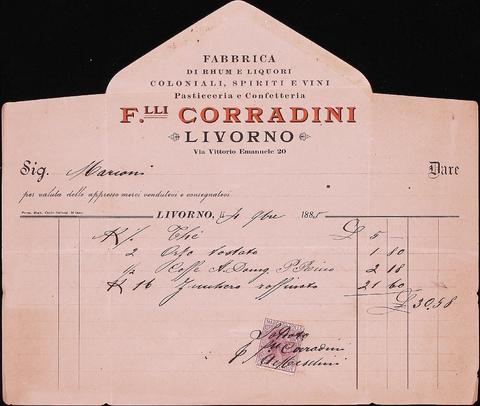 FABBRICA
DI RHUM E LIQUORI
COLONIALI, SPIRITI E VINI
Pasticceria e Confetteria
F.LLI CORRADINI
LIVORNO
Via Vittorio Emanuele 20
Sig. Marconi Dare
per valuta delle appresso merci vendutevi e consegnatevi.
LIVORNO, li 4 9bre 1885
K 1/2 Thè £ 5 -
2 Orzo tostato 1 80
1/2 Caffè S. Domg. P. Ricco 2 18
K 16 Zucchero raffinato 21 60
£ 30.58
Saldato
Corradini